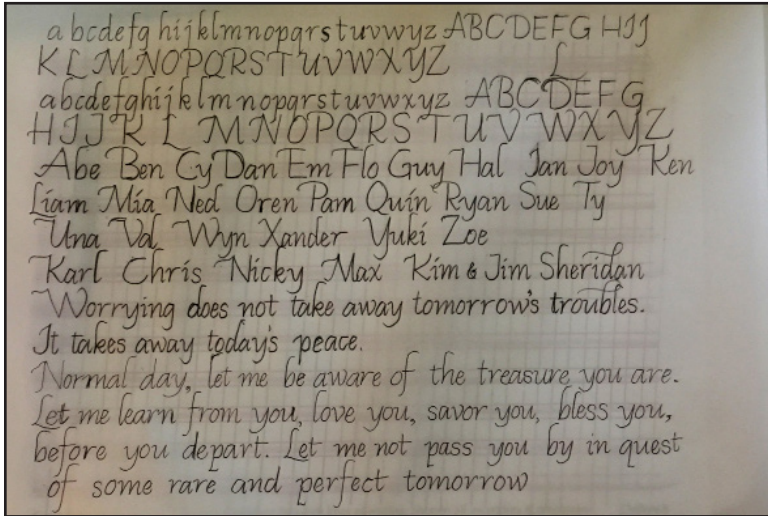 abcdefghijklmnopqrstuvwxyz ABCDEFG HIJ
KLMNOPQRSTUVWXYZ L
abcdefghijklmnopqrstuvwxyz ABCDEFG
HIJKL MNOPQRSTUV WXYZ
Abe Ben Cy Dan Em Flo Guy Hal Ian Joy Ken
Liam Mia Ned Oren Pam Quin Ryan Sue Ty
Una Val Wyn Xander Yuki Zoe
Karl Chris Nicky Max Kim & Jim Sheridan
Worrying does not take away tomorrow's troubles.
It takes away today's peace.
Normal day, let me be aware of the treasure you are.
Let me learn from you, love you, savor you, bless you,
before you depart. Let me not pass you by in quest
of some rare and perfect tomorrow